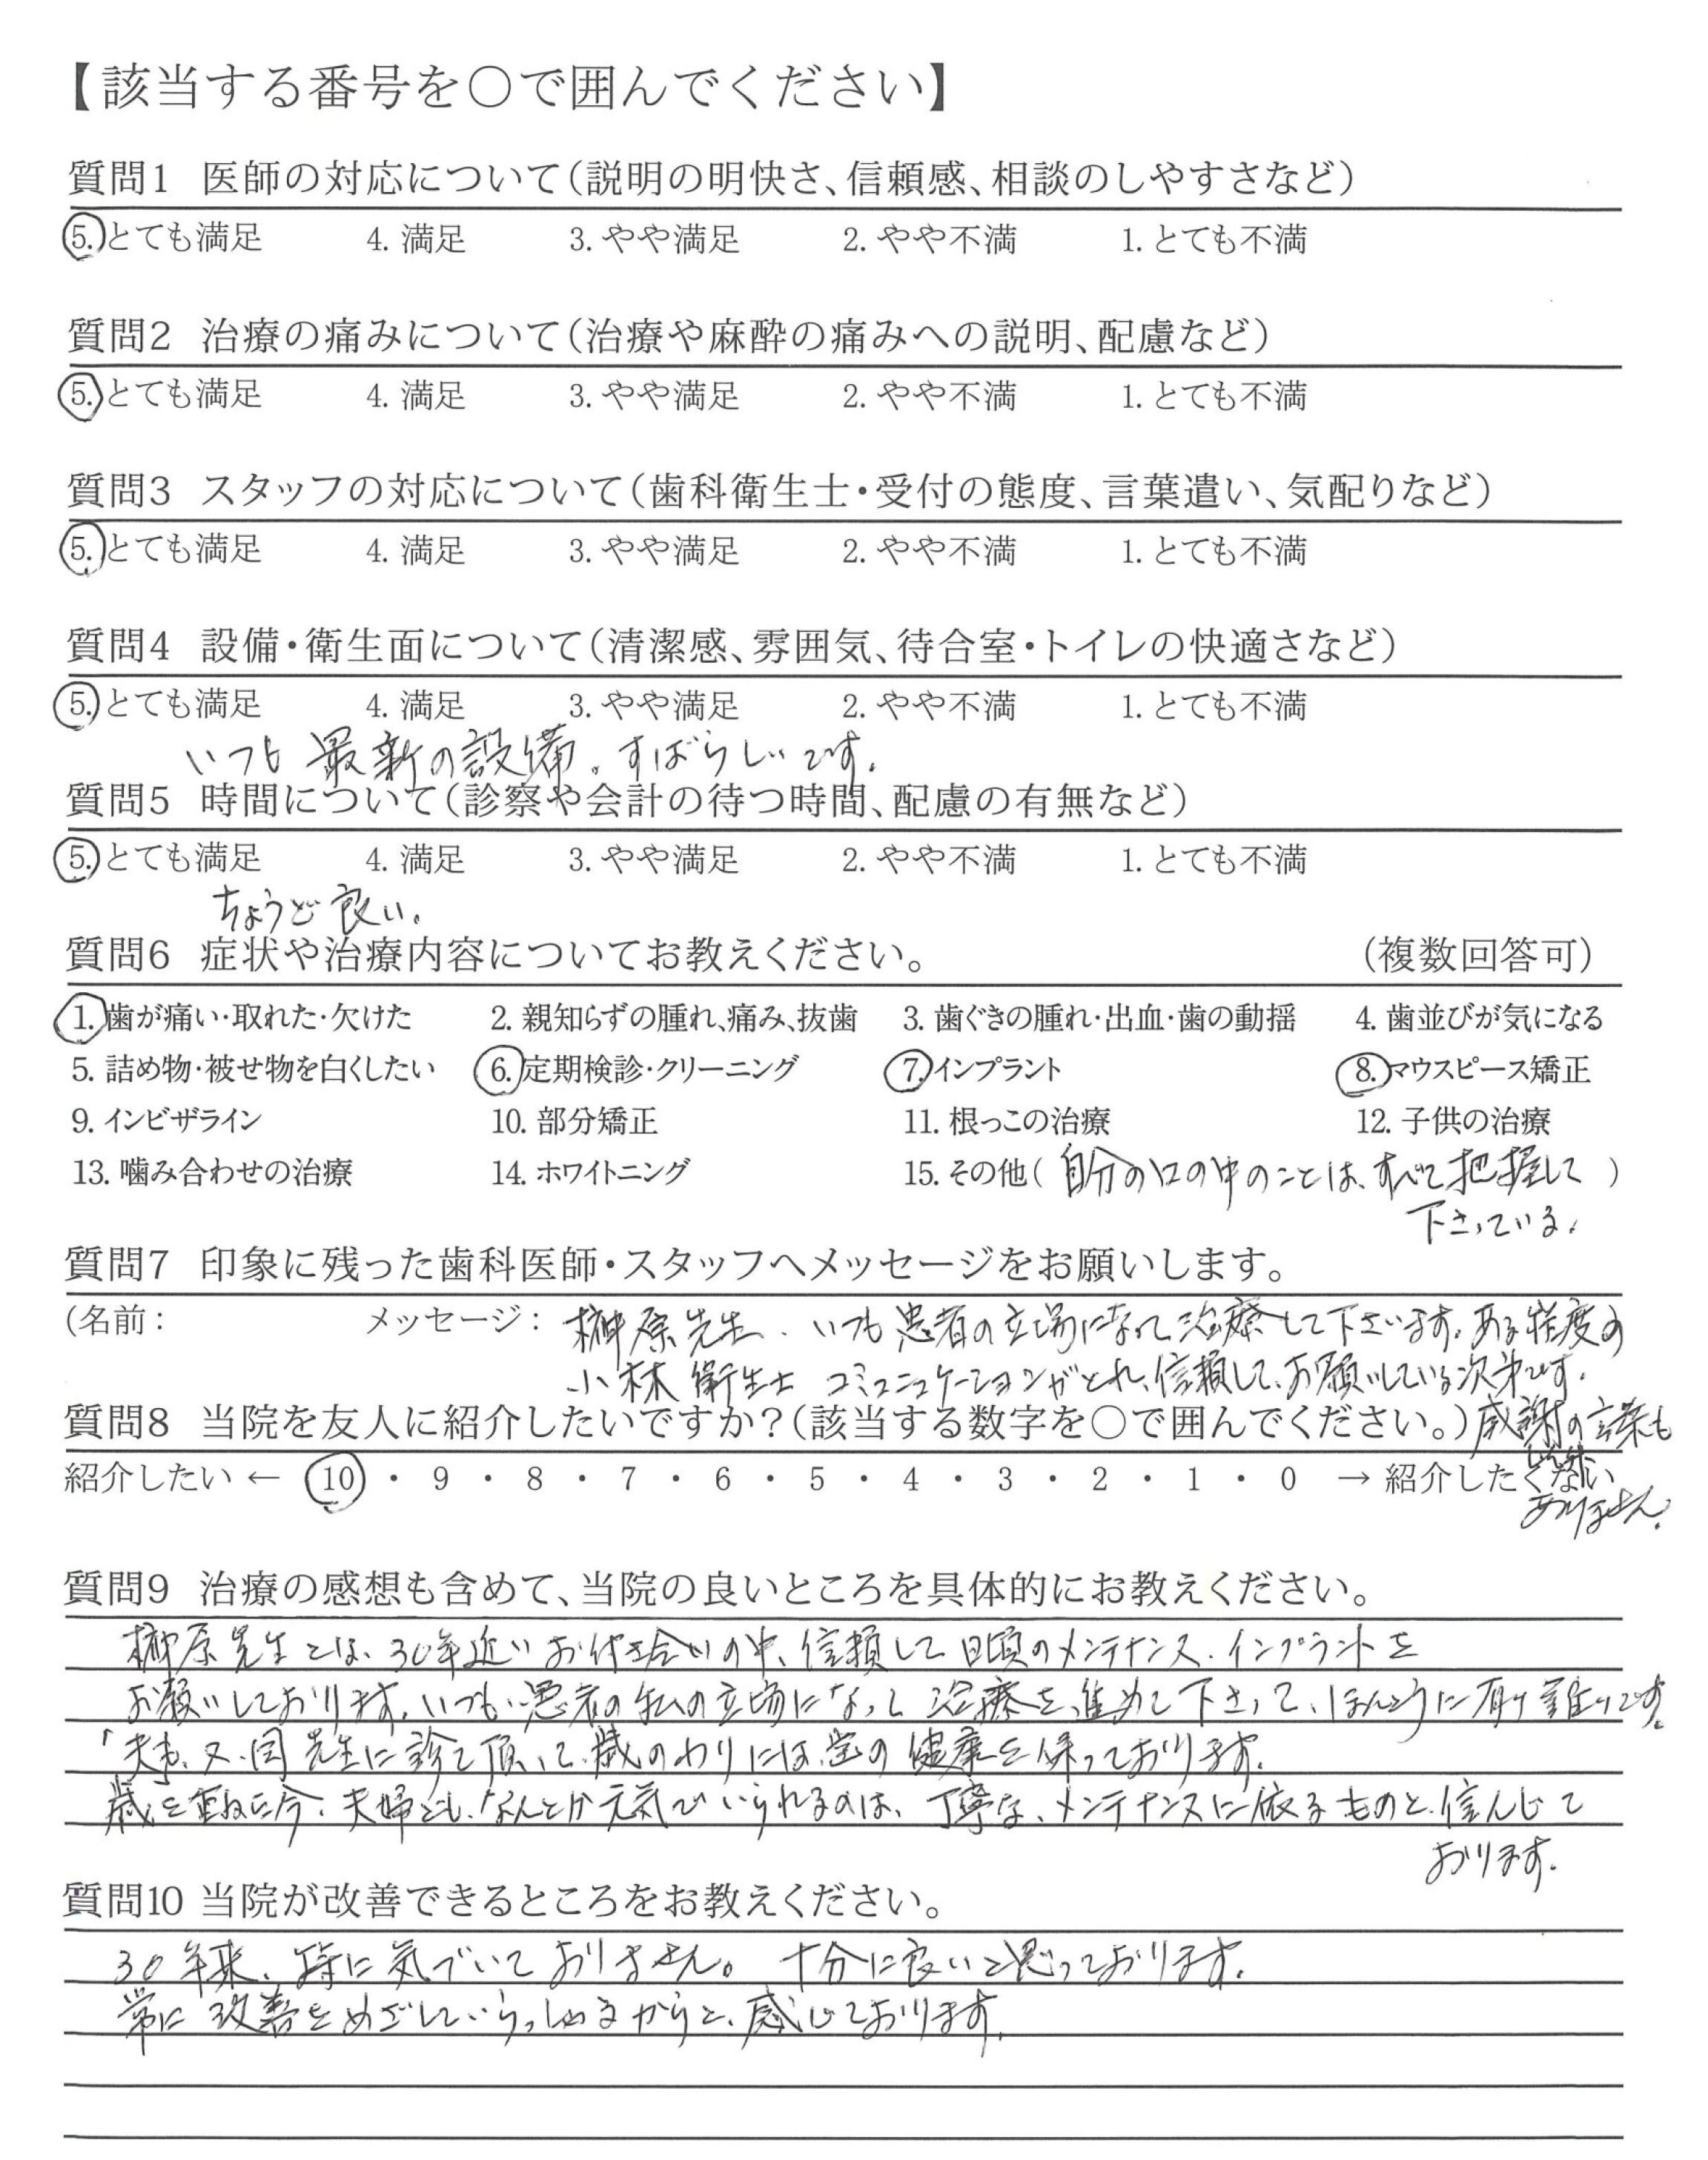 【該当する番号を○で囲んでください】
質問1 医師の対応について（説明の明快さ、信頼感、相談のしやすさなど）
5. とても満足 4. 満足 3. やや満足 2. やや不満 1. とても不満
質問2 治療の痛みについて（治療や麻酔の痛みへの説明、配慮など）
5. とても満足 4. 満足 3. やや満足 2. やや不満 1. とても不満
質問3 スタッフの対応について（歯科衛生士・受付の態度、言葉遣い、気配りなど）
5. とても満足 4. 満足 3. やや満足 2. やや不満 1. とても不満
質問4 設備・衛生面について（清潔感、雰囲気、待合室・トイレの快適さなど）
5. とても満足 4. 満足 3. やや満足 2. やや不満 1. とても不満
いつも最新の設備。すばらしいです。
質問5 時間について（診察や会計の待つ時間、配慮の有無など）
5. とても満足 4. 満足 3. やや満足 2. やや不満 1. とても不満
ちょうど良い。
質問6 症状や治療内容についてお教えください。 （複数回答可）
1. 歯が痛い・取れた・欠けた 2. 親知らずの腫れ、痛み、抜歯 3. 歯ぐきの腫れ・出血・歯の動揺 4. 歯並びが気になる
5. 詰め物・被せ物を白くしたい 6. 定期検診・クリーニング 7. インプラント 8. マウスピース矯正
9. インビザライン 10. 部分矯正 11. 根っこの治療 12. 子供の治療
13. 噛み合わせの治療 14. ホワイトニング 15. その他（自分の口の中のことは、すべて把握して）
下さっている。
質問7 印象に残った歯科医師・スタッフへメッセージをお願いします。
（名前： メッセージ： 榊原先生、いつも患者の立場になって治療して下さいます。ある程度の
小林衛生士 コミュニュケーションがとれ、信頼して、お願いしている次第です。
質問8 当院を友人に紹介したいですか？（該当する数字を○で囲んでください。） 感謝の言葉も
紹介したい ← 10 ・ 9 ・ 8 ・ 7 ・ 6 ・ 5 ・ 4 ・ 3 ・ 2 ・ 1 ・ 0 → 紹介したくない
ありません。
質問9 治療の感想も含めて、当院の良いところを具体的にお教えください。
榊原先生とは、30年近いお付き合いの中、信頼して日頃のメンテナンス、インプラントを
お願いしております。いつも患者の私の立場になって治療を進めて下さって、ほんとうに有り難いです。
夫も、又、同先生に診て頂いて、歳のわりには、歯の健康を保っております。
歳を重ねた今、夫婦とも、なんとか元気でいられるのは、丁寧な、メンテナンスに依るものと、信んじて
おります。
質問10 当院が改善できるところをお教えください。
30年来、特に気づいておりません。十分に良いと思っております。
常に改善をめざしていらっしゃるからと、感じております。